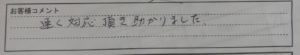 お客様コメント
速く対応頂き助かりました。